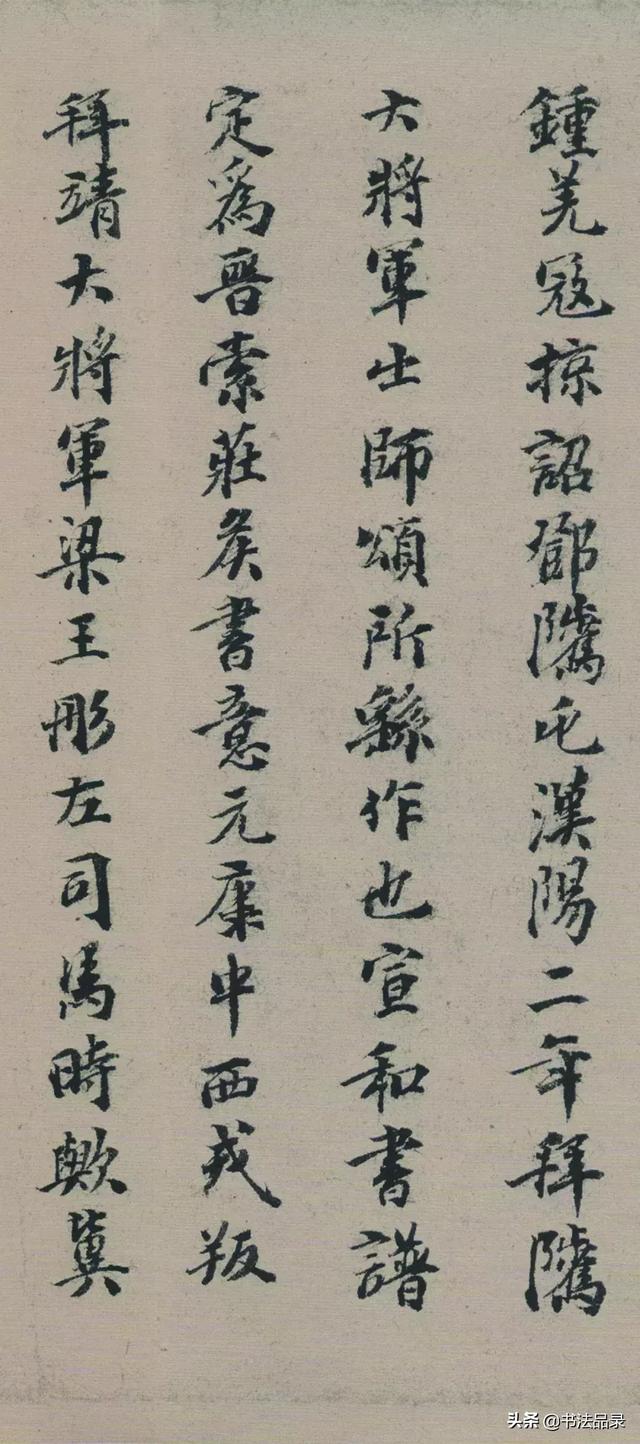 鍾羌寇掠詔鄧隲屯漢陽二年拜隲
大將軍出師頌所繇作也宣和書譜
定爲晉索莊矦書意元康中西戎叛
拜靖大將軍梁王彤左司馬時歟冀
头条 @书法品录